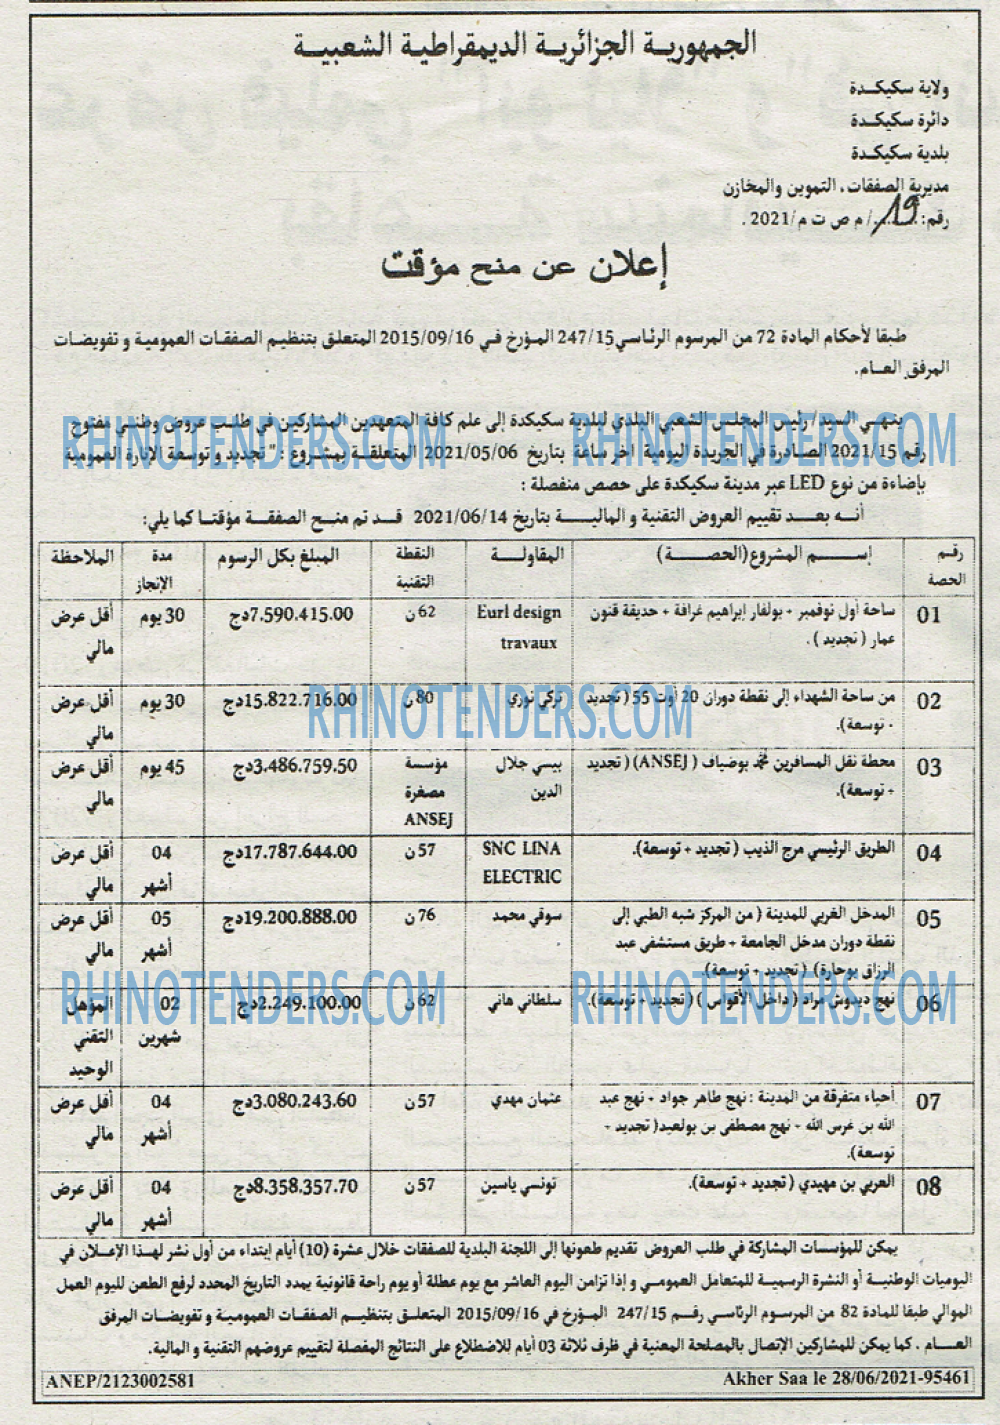 الجمهورية الجزائرية الديمقراطية الشعبية
ولاية سكيكدة
دائرة سكيكدة
بلدية سكيكدة
مديرية الصفقات، التموين والمخازن
رقم: 19/ م ص ت م/2021 .
إعلان عن منح مؤقت
طبقا لأحكام المادة 72 من المرسوم الرئاسي 247/15 المؤرخ في 2015/09/16 المتعلق بتنظيم الصفقات العمومية و تفويضات
المرفق العام.
ينهي السيد/ رئيس المجلس الشعبي البلدي لبلدية سكيكدة إلى علم كافة المتعهدين المشاركين في طلب عروض وطني مفتوح
رقم 2021/15 الصادرة في الجريدة اليومية اخر ساعة بتاريخ 2021/05/06 المتعلقة بمشروع : " تجديد و توسعة الإنارة العمومية
بإضاءة من نوع LED عبر مدينة سكيكدة على حصص منفصلة :
أنه بعد تقييم العروض التقنية و المالية بتاريخ 2021/06/14 قد تم منح الصفقة مؤقتا كما يلي:
رقم الحصة | إسم المشروع (الحصة) | المقاولة | النقطة التقنية | المبلغ بكل الرسوم | مدة الإنجاز | الملاحظة
01 | ساحة أول نوفمبر + بولفار إبراهيم غرافة + حديقة قنون عمار ( تجديد ) . | Eurl design travaux | 62 ن | 7.590.415.00دج | 30 يوم | أقل عرض مالي
02 | من ساحة الشهداء إلى نقطة دوران 20 أوت 55 ( تجديد + توسعة). | تركي نوري | 80 ن | 15.822.716.00دج | 30 يوم | أقل عرض مالي
03 | محطة نقل المسافرين محمد بوضياف ( ANSEJ) ( تجديد + توسعة). | بيسي جلال الدين | مؤسسة مصغرة ANSEJ | 3.486.759.50دج | 45 يوم | أقل عرض مالي
04 | الطريق الرئيسي مرج الذيب ( تجديد + توسعة). | SNC LINA ELECTRIC | 57 ن | 17.787.644.00دج | 04 أشهر | أقل عرض مالي
05 | المدخل الغربي للمدينة ( من المركز شبه الطبي إلى نقطة دوران مدخل الجامعة + طريق مستشفى عبد الرزاق بوحارة) ( تجديد + توسعة). | سوفي محمد | 76 ن | 19.200.888.00دج | 05 أشهر | أقل عرض مالي
06 | نهج ديدوش مراد ( داخل الأقواس ) ( تجديد + توسعة). | سلطاني هاني | 62 ن | 2.249.100.00دج | 02 شهرين | المؤهل التقني الوحيد
07 | أحياء متفرقة من المدينة : نهج طاهر جواد + نهج عبد الله بن غرس الله + نهج مصطفى بن بولعيد( تجديد + توسعة). | عثمان مهدي | 57 ن | 3.080.243.60دج | 04 أشهر | أقل عرض مالي
08 | العربي بن مهيدي ( تجديد + توسعة). | تونسي ياسين | 57 ن | 8.358.357.70دج | 04 أشهر | أقل عرض مالي
يمكن للمؤسسات المشاركة في طلب العروض تقديم طعونها إلى اللجنة البلدية للصفقات خلال عشرة (10) أيام إبتداء من أول نشر لهذا الإعلان في
اليوميات الوطنية أو النشرة الرسمية للمتعامل العمومي و إذا تزامن اليوم العاشر مع يوم عطلة أو يوم راحة قانونية يمدد التاريخ المحدد لرفع الطعن لليوم العمل
الموالي طبقا للمادة 82 من المرسوم الرئاسي رقم 247/15 المؤرخ في 2015/09/16 المتعلق بتنظيم الصفقات العمومية و تفويضات المرفق
العام . كما يمكن للمشاركين الإتصال بالمصلحة المعنية في ظرف ثلاثة 03 أيام للاضطلاع على النتائج المفصلة لتقييم عروضهم التقنية و المالية.
Akher Saa le 28/06/2021-95461
ANEP/2123002581
RHINOTENDERS.COM
RHINOTENDERS.COM
RHINOTENDERS.COM
RHINOTENDERS.COM
RHINOTENDERS.COM